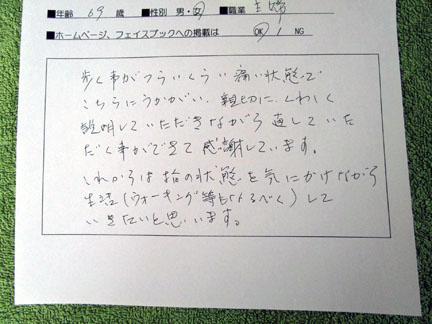 ■年齢 69 歳 ■性別 男・女 ■職業 主婦
■ホームページ、フェイスブックへの掲載は OK / NG
歩く事がつらいくらい痛い状態で
こちらにうかがい、親切に、くわしく
説明していただきながら直していた
だく事ができて感謝しています。
これからは 状態を気にかけながら
生活(ウォーキング等もなるべく)して
いきたいと思います。